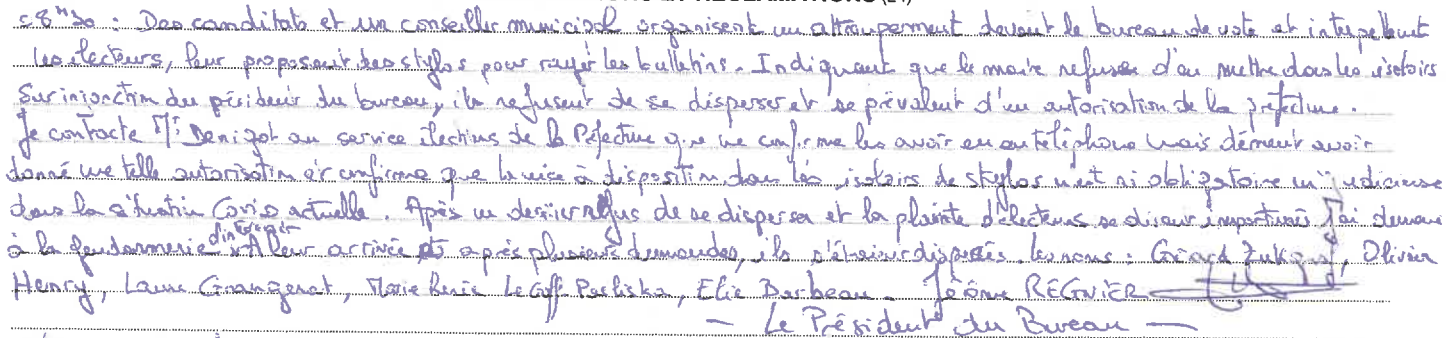 RECLAMATIONS
8H30 : Des canditats et un conseiller municipal organisent un attroupement devant le bureau de vote et interpellent
les electeurs, leur proposent des stylos pour rayer les bulletins. Indiquant que le maire refuse d'en mettre dans les isoloirs
Sur injonction du président du bureau, ils refusent de se disperser et se prévalent d'un autorisation de la prefecture.
Je contacte Mr Denigot au service elections de la Préfecture que me confirme les avoir eu au téléphone mais dément avoir
donné une telle autorisation et confirme que la mise à disposition dans les isoloirs de stylos n'est ni obligatoire ni judicieuse
dans la situation Covid actuelle. Après un dernier refus de se disperser et la plainte d'électeurs se disant importunés j'ai demandé
à la gendarmerie d'intervenir. A leur arrivée et après plusieurs demandes, ils s'étaient dispersés. Les noms : Gérard, Olivier
Henry, Laure Grangeret, Marie Le Goff-Pavliska, Elie Barbeau. Jérôme REGNIER
- Le Président du Bureau -